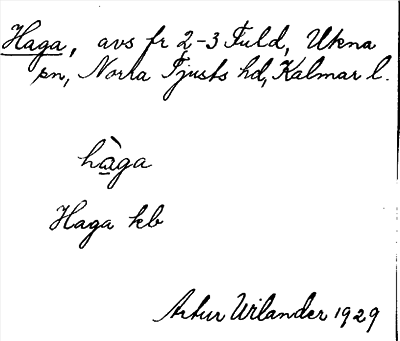 Haga, avs fr 2-3 Fuld, Ukna
sn, Norra Tjusts hd, Kalmar l.
hàga
Haga kb
Artur Wilander 1929